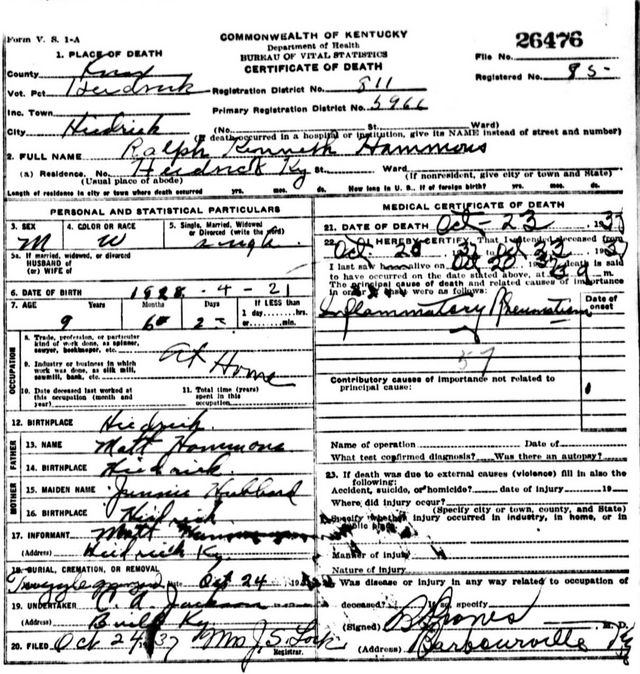 Form V. S. 1-A
COMMONWEALTH OF KENTUCKY
Department of Health
BUREAU OF VITAL STATISTICS
CERTIFICATE OF DEATH
26476
File No.
Registered No. 85-
1. PLACE OF DEATH
County Knox
Vot. Pct. Heidrick Registration District No. 811
Inc. Town Primary Registration District No. 5966
City Hiedrick (No. St. Ward)
(If death occurred in a hospital or institution, give its NAME instead of street and number)
2. FULL NAME Ralph Kenneth Hammons
(a) Residence. No. Heidrick Ky St. Ward
(Usual place of abode) (If nonresident, give city or town and State)
Length of residence in city or town where death occurred yrs. mos. ds. How long in U. S., if of foreign birth? yrs. mos. ds.
PERSONAL AND STATISTICAL PARTICULARS
3. SEX M
4. COLOR OR RACE W
5. Single, Married, Widowed or Divorced (write the word) single
5a. If married, widowed, or divorced
HUSBAND of
(or) WIFE of
6. DATE OF BIRTH 1928-4-21
7. AGE Years Months Days If LESS than
1 day, hrs.
or min.
9 6
8. Trade, profession, or particular
kind of work done, as spinner,
sawyer, bookkeeper, etc.
At Home
9. Industry or business in which
work was done, as silk mill,
sawmill, bank, etc.
10. Date deceased last worked at
this occupation (month and
year)
11. Total time (years)
spent in this
occupation
OCCUPATION
12. BIRTHPLACE Hiedrick
FATHER
13. NAME Matt Hammons
14. BIRTHPLACE Hiedrick
MOTHER
15. MAIDEN NAME Jennie Hubbard
16. BIRTHPLACE Hiedrick
17. INFORMANT Matt
(Address) Heidrick Ky.
18. BURIAL, CREMATION, OR REMOVAL
Date Oct 24
19. UNDERTAKER C. A. Jackson
(Address) Ky.
20. FILED Oct 24 37 Mrs J. S. Lock
Registrar.
MEDICAL CERTIFICATE OF DEATH
21. DATE OF DEATH Oct- 23 1937
22. I HEREBY CERTIFY, That I attended deceased from
Oct- 20 37 to Oct 23 1937
I last saw alive on Oct 20 37 death is said
to have occurred on the date stated above, at m.
The principal cause of death and related causes of importance
in order of onset were as follows:
Date of onset
Inflammatory Rheumatism
57
Contributory causes of importance not related to
principal cause:
Name of operation Date of
What test confirmed diagnosis? Was there an autopsy?
23. If death was due to external causes (violence) fill in also the
following:
Accident, suicide, or homicide? date of injury 19
Where did injury occur?
(Specify city or town, county, and State)
Specify whether injury occurred in industry, in home, or in
public place
Manner of injury
Nature of injury
24. Was disease or injury in any way related to occupation of
deceased? If so, specify
(Signed) Jones M. D.
(Address) Barbourville Ky